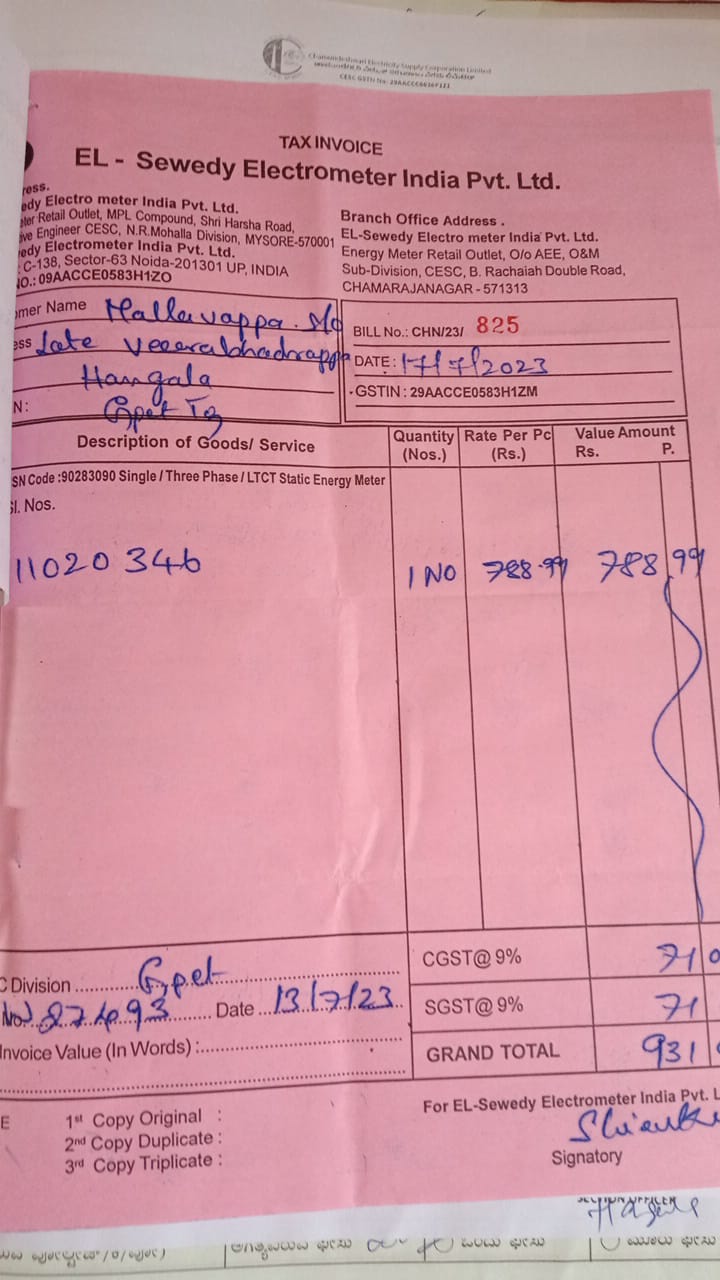 Chamundeshwari Electricity Supply Corporation Limited
TAX INVOICE
EL - Sewedy Electrometer India Pvt. Ltd.
ress.
edy Electro meter India Pvt. Ltd.
ter Retail Outlet, MPL Compound, Shri Harsha Road,
ive Engineer CESC, N.R.Mohalla Division, MYSORE-570001
edy Electrometer India Pvt. Ltd.
: C-138, Sector-63 Noida-201301 UP, INDIA
NO.: 09AACCE0583H1ZO
Branch Office Address .
EL-Sewedy Electro meter India Pvt. Ltd.
Energy Meter Retail Outlet, O/o AEE, O&M
Sub-Division, CESC, B. Rachaiah Double Road,
CHAMARAJANAGAR - 571313
omer Name Mallavappa. S/o
ess Late Veeerabhadrappa
Hangala
N: Gpet Tq
BILL No.: CHN/23/ 825
DATE : 17/7/2023
GSTIN : 29AACCE0583H1ZM
Description of Goods/ Service Quantity (Nos.) Rate Per Pc (Rs.) Value Amount Rs. P.
SN Code :90283090 Single / Three Phase / LTCT Static Energy Meter
Sl. Nos.
11020346 1 NO 788.99 788 99
C Division Gpet CGST@ 9% 71 0
No 87493 Date 13/7/23 SGST@ 9% 71
Invoice Value (In Words) : GRAND TOTAL 931
For EL-Sewedy Electrometer India Pvt. L
E 1st Copy Original :
2nd Copy Duplicate :
3rd Copy Triplicate :
Signatory
SECTION OFFICER